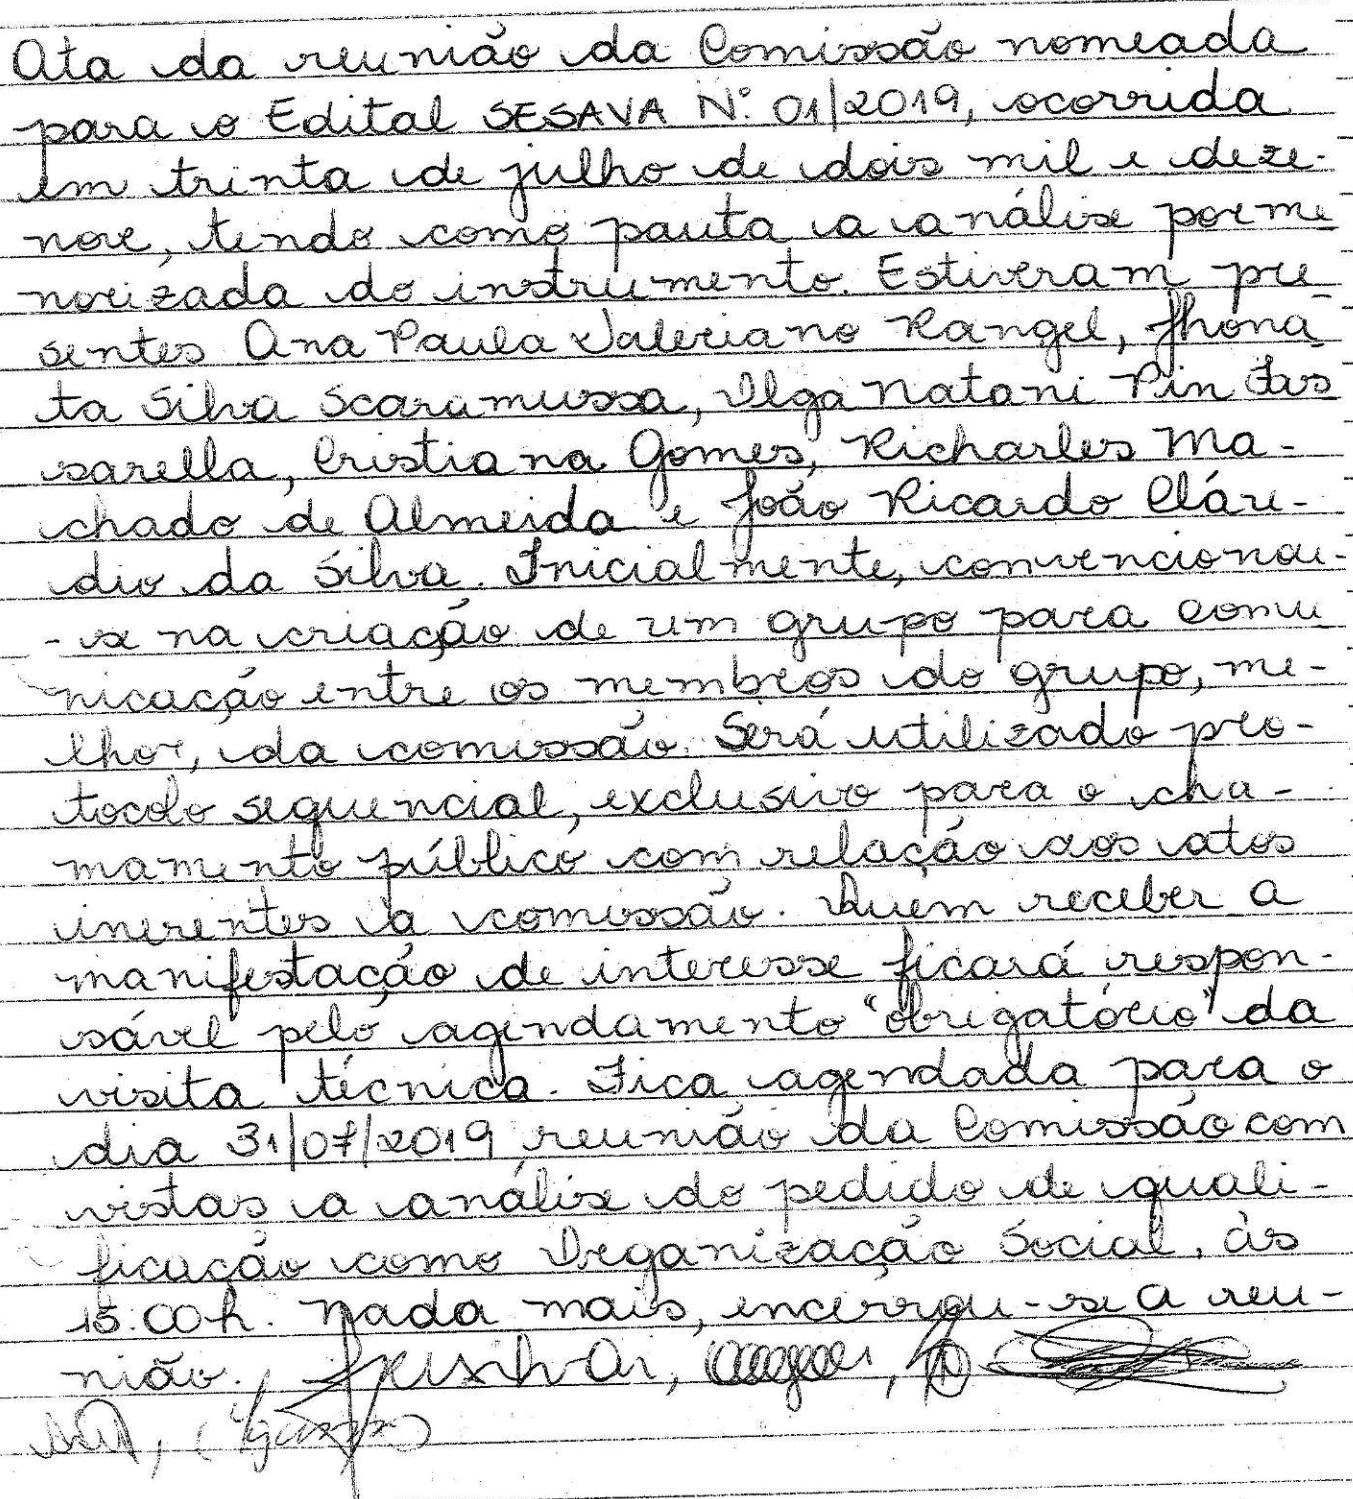 Ata da reunião da Comissão nomeada
para o Edital SESAVA Nº 01/2019, ocorrida
em trinta de julho de dois mil e deze-
nove, tendo como pauta a análise porme
norizada do instrumento. Estiveram pre
sentes Ana Paula Valeriano Rangel, Jhona
ta Silva Scaramussa, Ilga Natani Pin Fas
sarella, Cristiana Gomes, Richarles Ma-
chado de Almeida e João Ricardo Cláu-
dio da Silva. Inicialmente, convencionou-
-se na criação de um grupo para comu
nicação entre os membros do grupo, me-
lhor, da comissão. Será utilizado pro-
tocolo sequencial, exclusivo para o cha-
mamento público com relação aos atos
inerentes a comissão. Quem receber a
manifestação de interesse ficará respon-
sável pelo agendamento "obrigatório" da
visita técnica. Fica agendada para o
dia 31/07/2019 reunião da Comissão com
vistas a análise do pedido de quali-
ficação como Organização Social, às
15:00h. Nada mais, encerrou-se a reu-
nião.